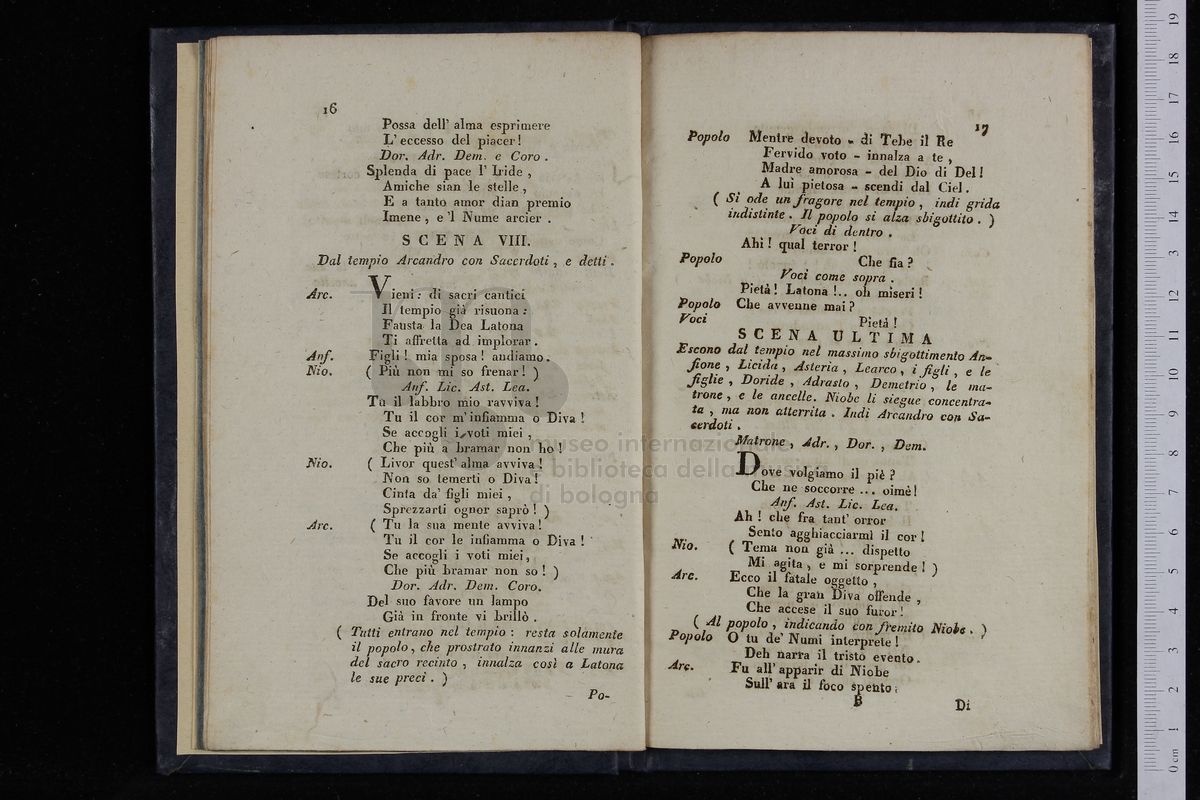 16
Possa dell' alma esprimere
L' eccesso del piacer!
Dor. Adr. Dem. e Coro .
Splenda di pace l' Iride ,
Amiche sian le stelle ,
E a tanto amor dian premio
Imene , e 'l Nume arcier .
SCENA VIII.
Dal tempio Arcandro con Sacerdoti , e detti .
Arc. Vieni : di sacri cantici
Il tempio già risuona :
Fausta la Dea Latona
Ti affretta ad implorar .
Anf. Figli ! mia sposa ! andiamo.
Nio. ( Più non mi so frenar ! )
Anf. Lic. Ast. Lea.
Tu il labbro mio ravviva !
Tu il cor m' infiamma o Diva !
Se accogli i voti miei ,
Che più a bramar non ho !
Nio. ( Livor quest' alma avviva !
Non so temerti o Diva !
Cinta da' figli miei ,
Sprezzarti ognor saprò ! )
Arc. ( Tu la sua mente avviva !
Tu il cor le infiamma o Diva !
Se accogli i voti miei,
Che più bramar non so ! )
Dor. Adr. Dem. Coro.
Del suo favore un lampo
Già in fronte vi brillò .
( Tutti entrano nel tempio : resta solamente
il popolo, che prostrato innanzi alle mura
del sacro recinto , innalza così a Latona
le sue preci . )
Po-
17
Popolo Mentre devoto - di Tebe il Re
Fervido voto - innalza a te ,
Madre amorosa - del Dio di Del!
A lui pietosa - scendi dal Ciel.
( Si ode un fragore nel tempio , indi grida
indistinte . Il popolo si alza sbigottito . )
Voci di dentro .
Ahi ! qual terror !
Popolo Che fia ?
Voci come sopra .
Pietà ! Latona !.. oh miseri !
Popolo Che avvenne mai ?
Voci Pietà !
SCENA ULTIMA
Escono dal tempio nel massimo sbigottimento An-
fione , Licida , Asteria , Learco , i figli , e le
figlie , Doride , Adrasto , Demetrio , le ma-
trone , e le ancelle. Niobe li siegue concentra-
ta , ma non atterrita . Indi Arcandro con Sa-
cerdoti .
Matrone , Adr. , Dor. , Dem.
Dove volgiamo il piè ?
Che ne soccorre ... oimè!
Anf. Ast. Lic. Lea.
Ah ! che fra tant' orror
Sento agghiacciarmi il cor !
Nio. ( Tema non già ... dispetto
Mi agita , e mi sorprende ! )
Arc. Ecco il fatale oggetto ,
Che la gran Diva offende ,
Che accese il suo furor !
( Al popolo , indicando con fremito Niobe . )
Popolo O tu de' Numi interprete !
Deh narra il tristo evento.
Arc. Fu all' apparir di Niobe
Sull' ara il foco spento ;
B
Di
museo internazionale
e biblioteca della musica
di bologna
0 cm 1 2 3 4 5 6 7 8 9 10 11 12 13 14 15 16 17 18 19